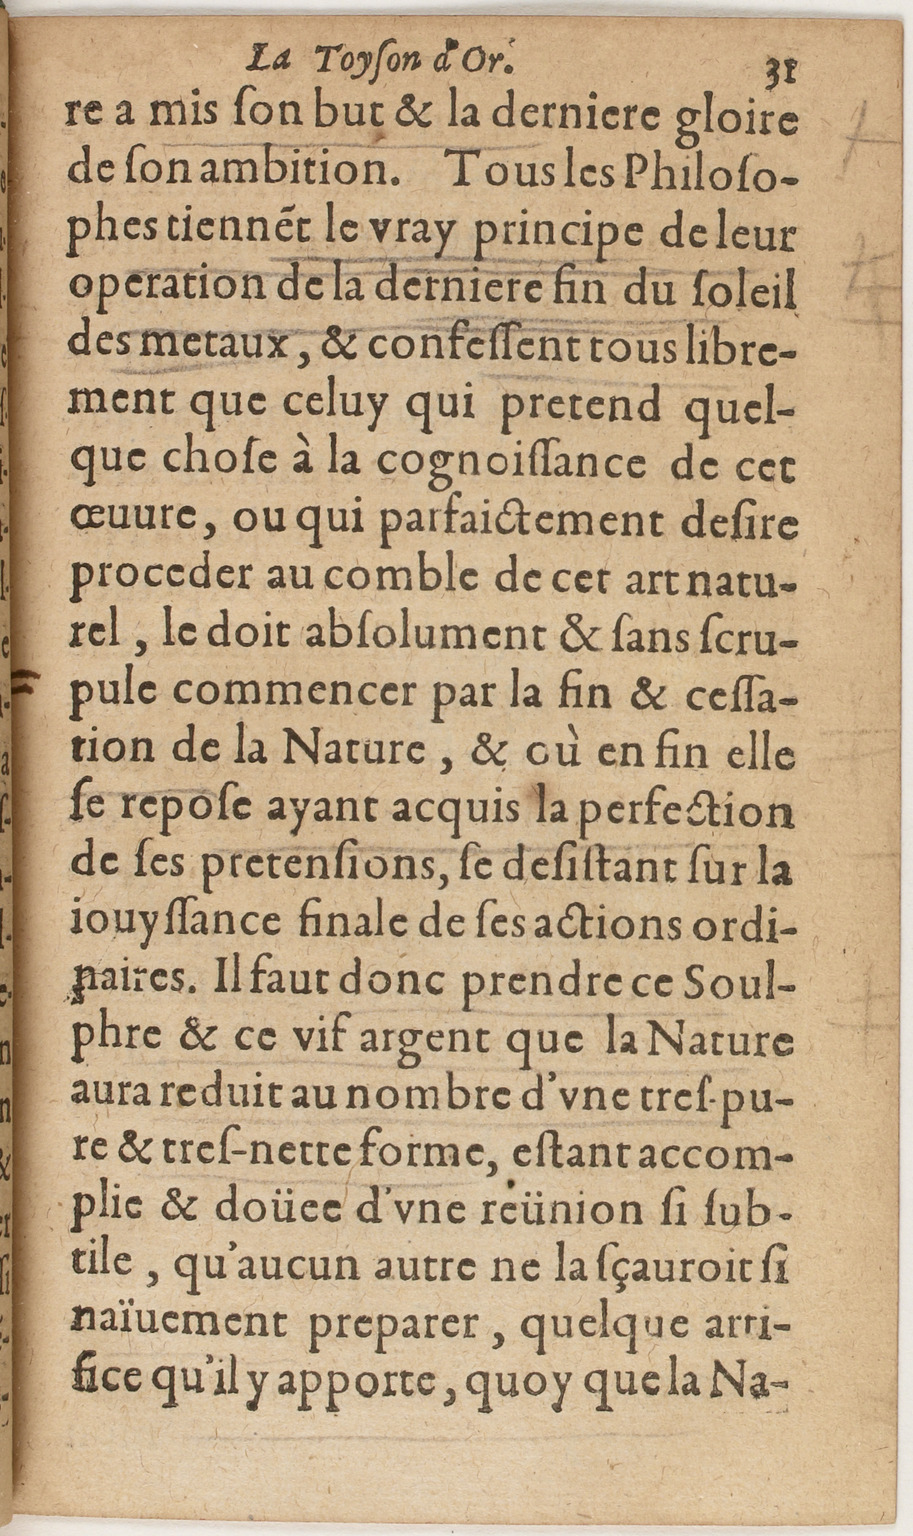 La Toyſon d'Or. 31
re a mis ſon but & la derniere gloire
de ſon ambition. Tous les Philoſo-
phes tiennẽt le vray principe de leur
operation de la derniere fin du ſoleil
des metaux, & confeſſent tous libre-
ment que celuy qui pretend quel-
que choſe à la cognoiſſance de cet
œuure, ou qui parfaictement deſire
proceder au comble de cet art natu-
rel, le doit abſolument & ſans ſcru-
pule commencer par la fin & ceſſa-
tion de la Nature, & où en fin elle
ſe repoſe ayant acquis la perfection
de ſes pretenſions, ſe deſiſtant ſur la
iouyſſance finale de ſes actions ordi-
naires. Il faut donc prendre ce Soul-
phre & ce vif argent que la Nature
aura reduit au nombre d'vne treſ-pu-
re & treſ-nette forme, eſtant accom-
plie & doüee d'vne reünion ſi ſub-
tile, qu'aucun autre ne la ſçauroit ſi
naïuement preparer, quelque arti-
fice qu'il y apporte, quoy que la Na-